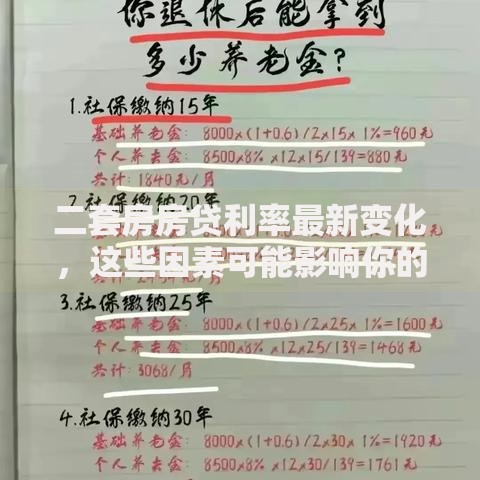 你退休后能拿到
多少养老金?
1.社保缴纳15年
基础养老金: 8000×(1+0.6)/2×15× 1%=960元
个人养老金: 8500×8% ×12×15/139=880元
共计: 1840元/月
2.社保缴纳20年
二套房房贷利率最新变化
，这些因素可能影响你的
3.社保缴纳25年
基础养老金: 8000×(1+0.6)/2×25×1%=1600元
个人养老金: 8500×8%×12×25/139=1468元
共计: 3068/月
4.社保缴纳30年
基础养老金: 8000×(1+0.6)/2×30×1%=1920元
个人养老金: 8500×8%×12×30/139=1761元